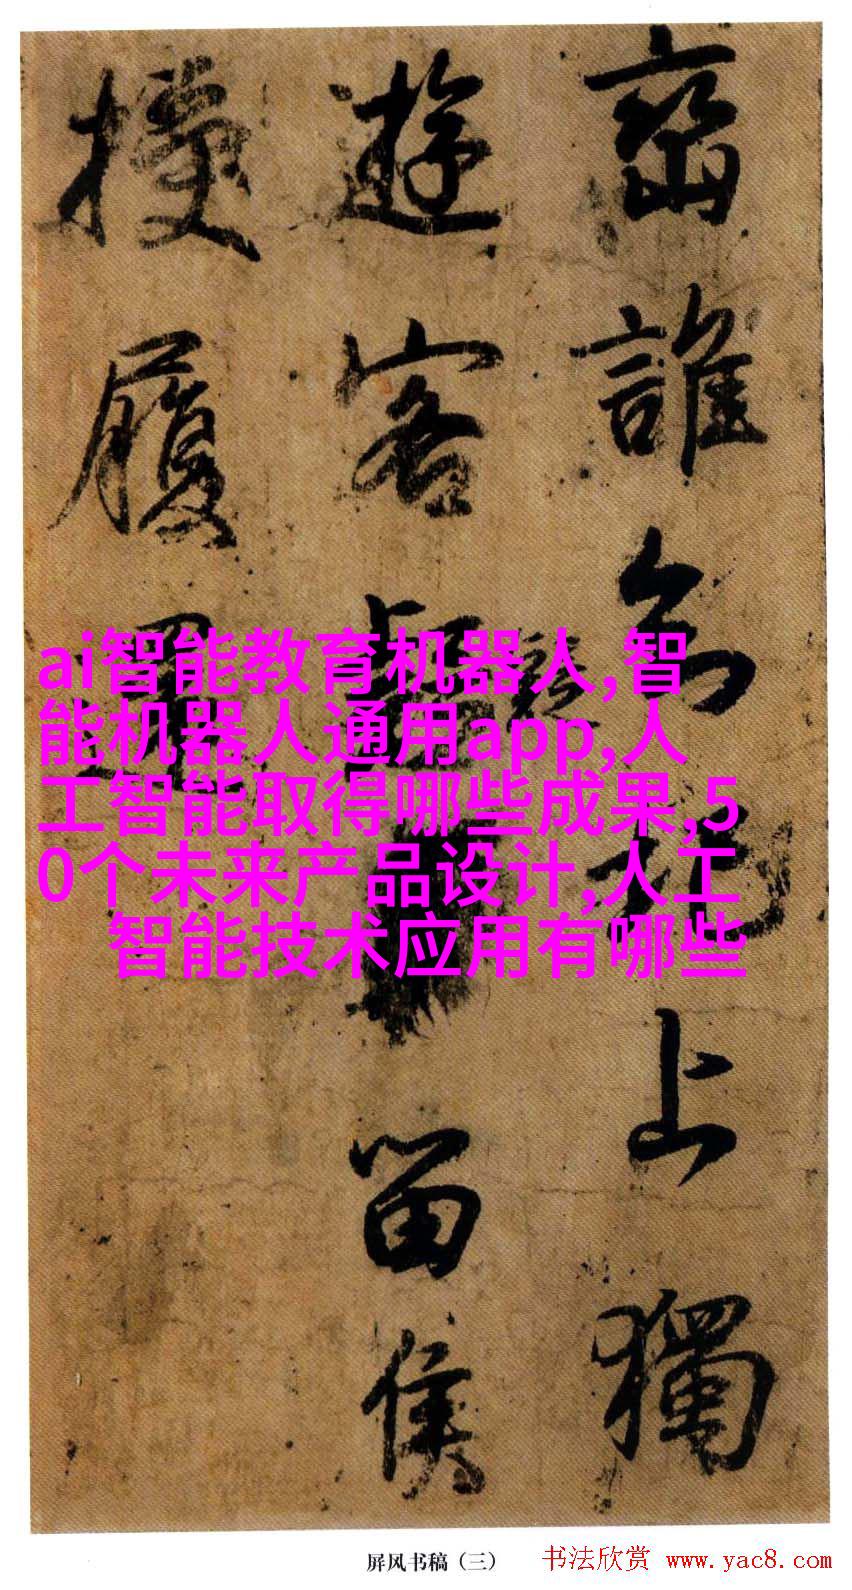 誰 上獨
遊客 留侯
履
ai智能教育机器人,智
能机器人通用app,人
工智能取得哪些成果,5
0个未来产品设计,人工
智能技术应用有哪些
屏风书稿（三） 书法欣赏 www.yac8.com